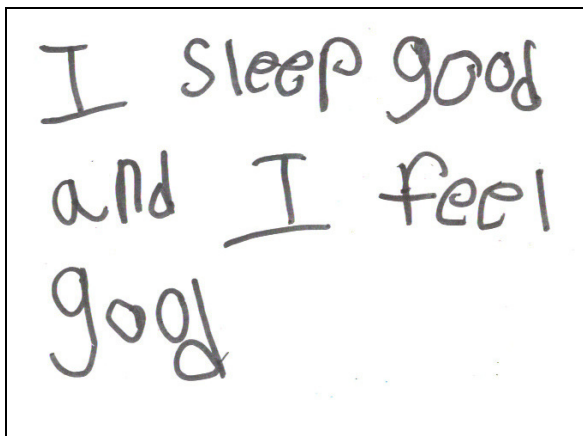 I sleep good
and I feel
good